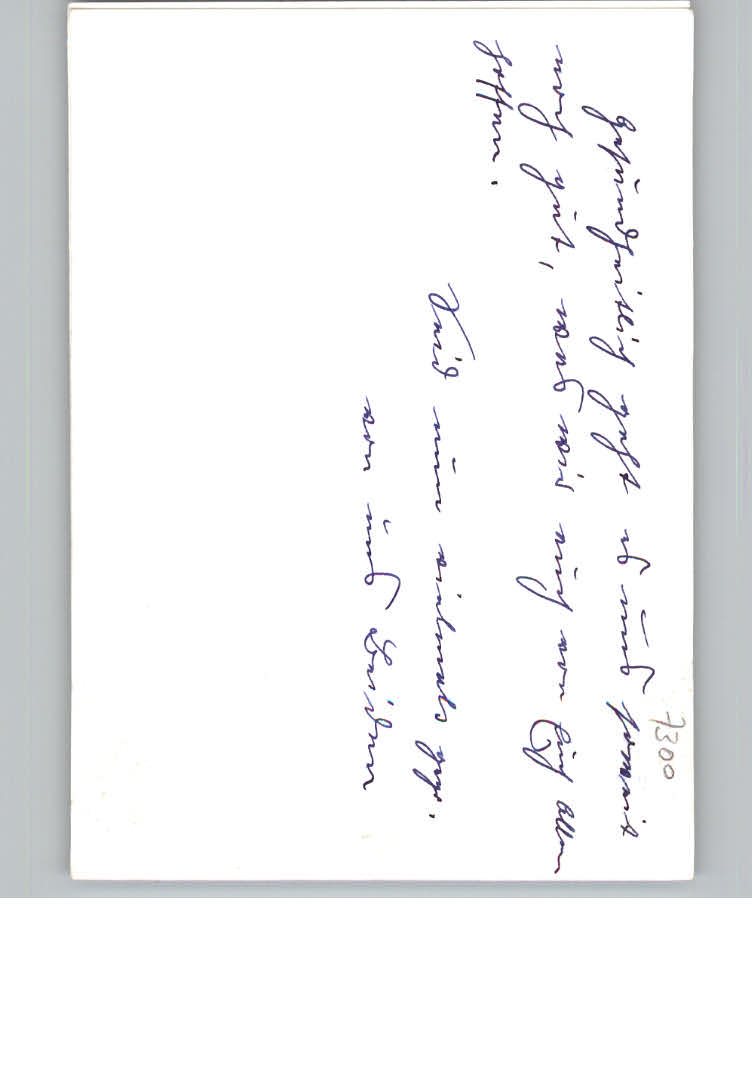 7300
Gesundheitlich geht es uns soweit
noch gut, was wir auch von Euch allen
hoffen.
Seid nun vielmals gegr.
von uns Beiden